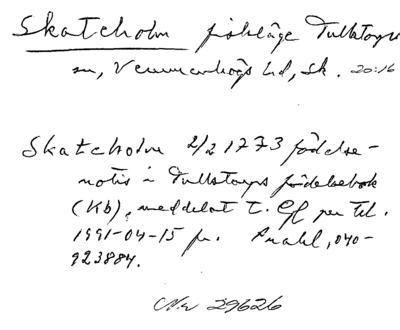 Skateholm fiskläge Tullstorps
sn, Vemmenhögs hd, Sk. 20:16
Skateholm 2/2 1773 födelse-
notis i Tullstorps födelsebok
(Kb), meddelat t. per tel.
1991-04-15 fr. 040-
923884.
29626